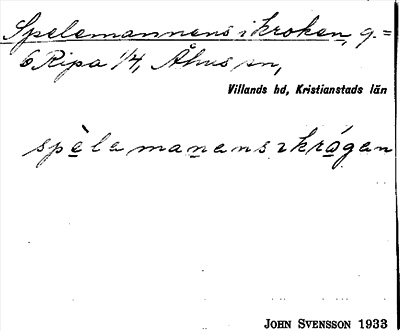 Spelemannens i kroken, g. =
6 Ripa 1/4, Åhus sn,
Villands hd, Kristianstads län
spèlemanens i krǻgan
JOHN SVENSSON 1933